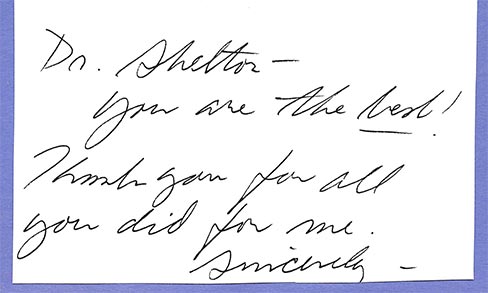 Dr. Shelton –
you are the best!
Thank you for all
you did for me.
Sincerely –